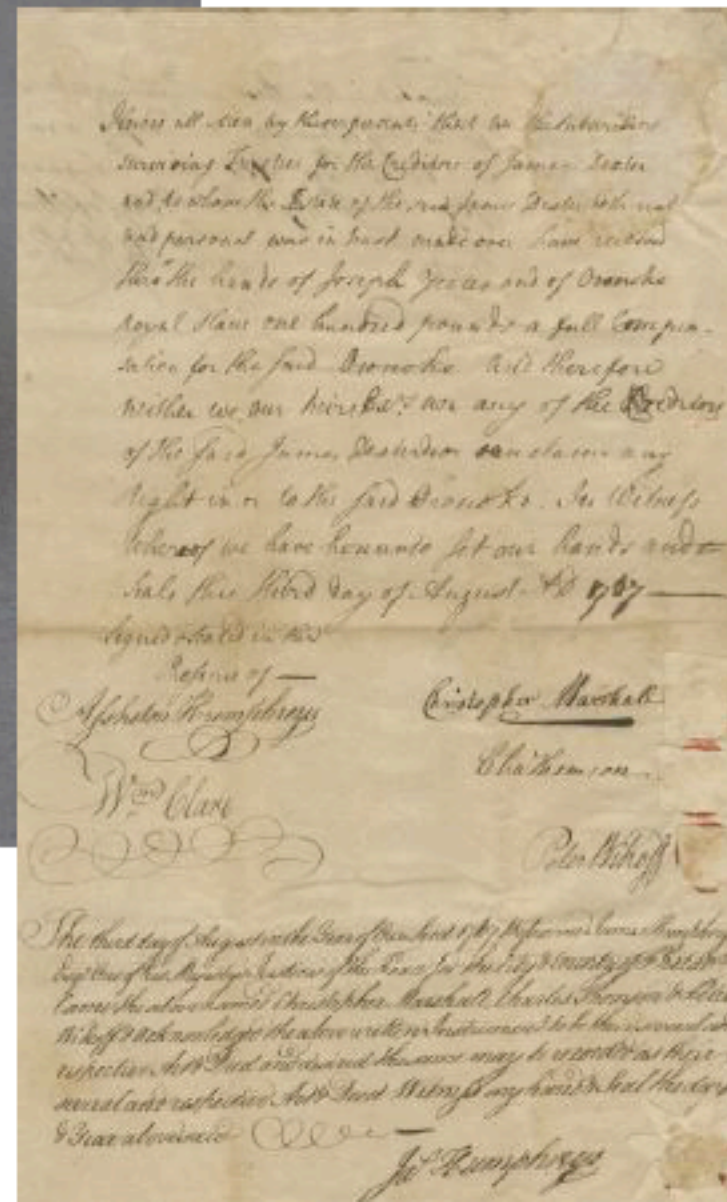 Know all Men by these presents that we the Subscribers
surviving Trustees for the Creditors of James Dexter
and to whom the Estate of the said James Dexter both real
and personal was in trust made over have received
thro' the hands of Joseph Yeates and of Oronoko
royal Slave one hundred pounds a full Compen-
sation for the said Oronoko. And therefore
neither we our heirs Exrs nor any of the Creditors
of the said James Dexter can claim any
Right in or to the said Oronoko. In Witness
whereof we have hereunto set our hands and
seals this third day of August AD 1767
Signed & sealed in the
Presence of
Assheton Humphreys
Christopher Marshall
Cha Thomson
Wm Clare
Peter Wikoff
The third day of August in the Year of our Lord 1767 Before me James Humphreys
Esqr One of his Majestys Justices of the Peace for the City & County of
Came the above named Christopher Marshall Charles Thomson & Peter
Wikoff & Acknowledged the above written Instrument to be their several and
respective Act & Deed and desired the same may be recorded as their
several and respective Act & Deed Witness my hand & Seal the day
& Year abovesaid
Jas Humphreys